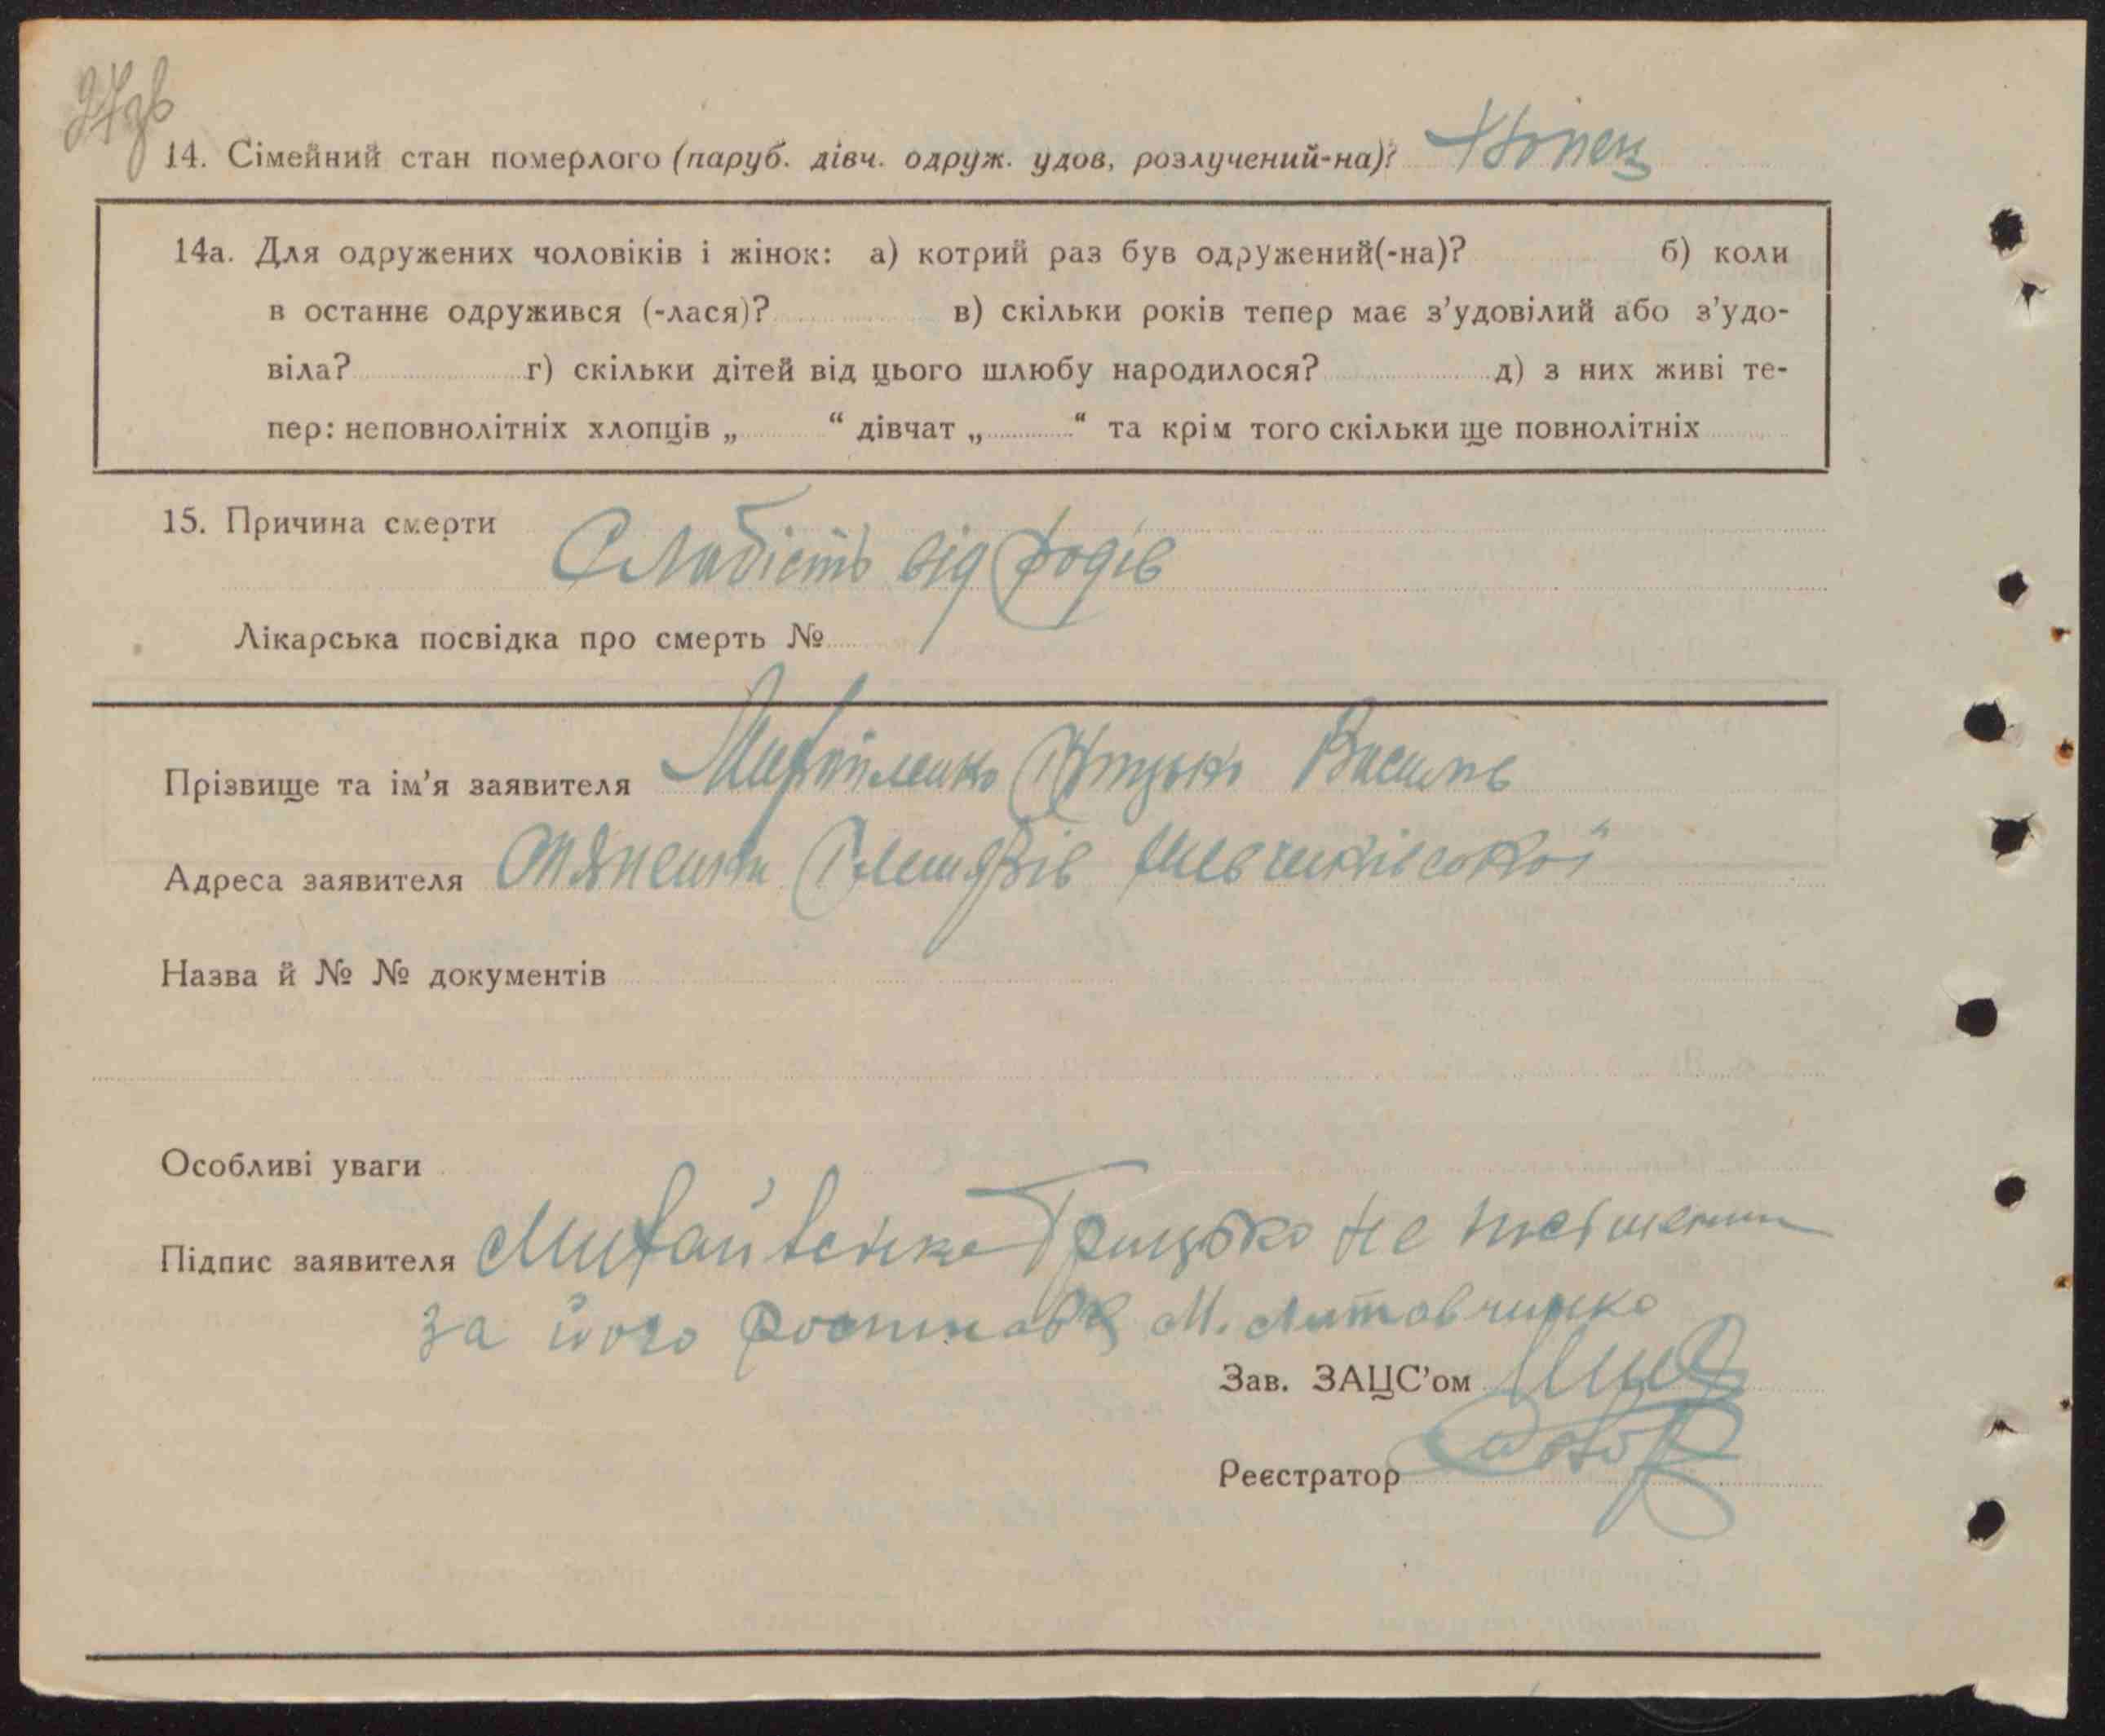 27зв
14. Сімейний стан померлого (паруб. дівч. одруж. удов, розлучений-на)? Хлопец
14а. Для одружених чоловіків і жінок: а) котрий раз був одружений(-на)? б) коли
в останнє одружився (-лася)? в) скільки років тепер має з’удовілий або з’удо-
віла? г) скільки дітей від цього шлюбу народилося? д) з них живі те-
пер: неповнолітніх хлопців „ “ дівчат „ “ та крім того скільки ще повнолітніх
15. Причина смерти
Слабість від родів
Лікарська посвідка про смерть №
Прізвище та ім’я заявителя Грицько Василь
Адреса заявителя
Назва й № № документів
Особливі уваги
Підпис заявителя Михайленко Грицько не письмени
за його росписавс М. Литовченко
Зав. ЗАЦС’ом
Реєстратор